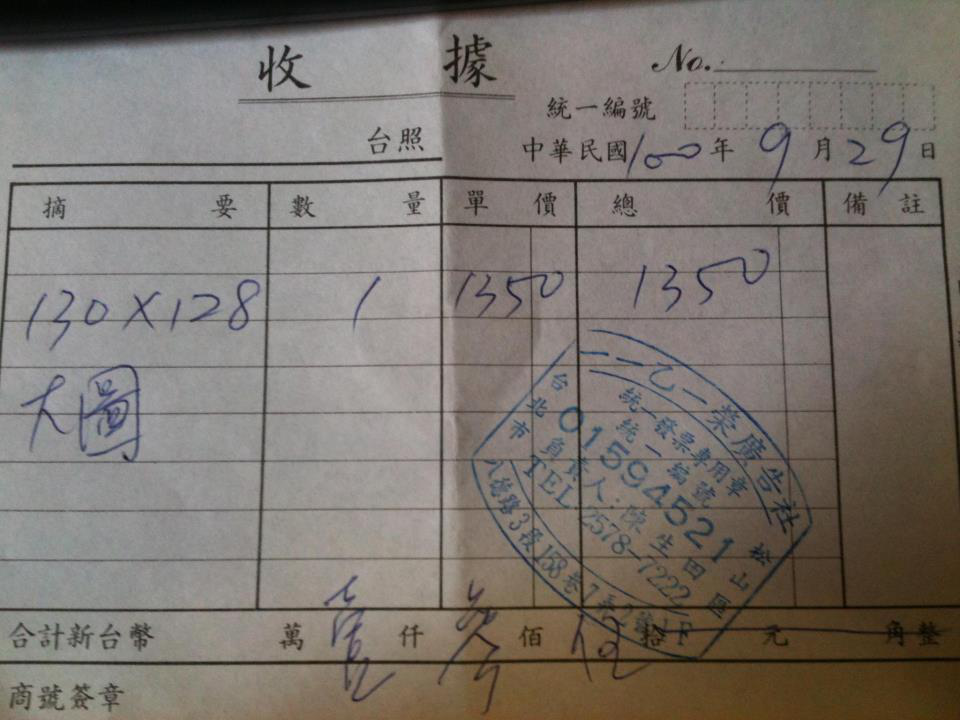 收據 No.
統一編號
台照 中華民國100年9月29日
摘要 數量 單價 總價 備註
130×128 1 1350 1350
大圖
一榮廣告社
統一發票專用章
統一編號
01594521
負責人:陳生田
TEL:2578-7222
台北市松山區
八德路3段158巷7弄2號1F
合計新台幣 萬壹仟參佰伍拾元角整
商號簽章